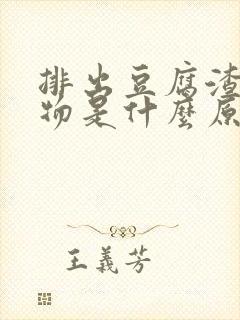 排出豆腐渣
物是什麼原
王義芳